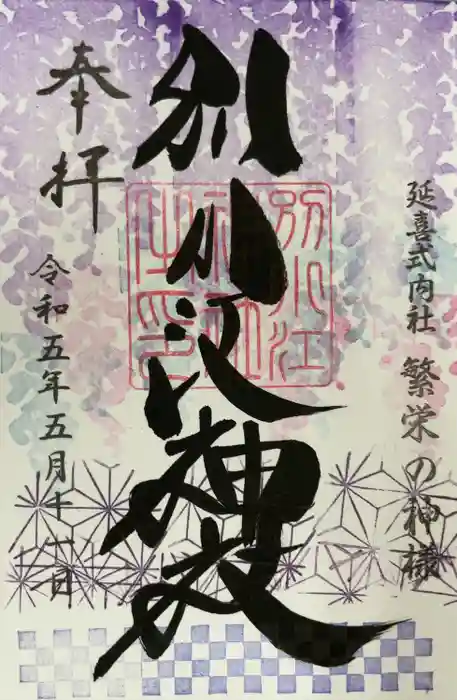 延喜式内社 繁栄の神様
別小江神社
別小江
神社
之印
奉拝
令和五年五月十日